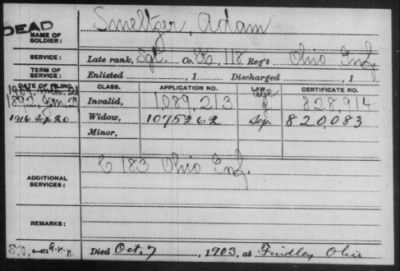 DEAD
NAME OF SOLDIER: Smeltzer, Adam
SERVICE: Late rank, Sgt. Co. , 118 Reg't Ohio Inf
TERM OF SERVICE: Enlisted , 1 Discharged , 1
DATE OF FILING. CLASS. APPLICATION NO. LAW. CERTIFICATE NO.
Invalid, 1089,213 828,914
1916 Sep 20 Widow, 1075262 820,083
Minor,
ADDITIONAL SERVICES: 183 Ohio Inf.
REMARKS:
Died Oct. 7, 1903, at Findlay Ohio